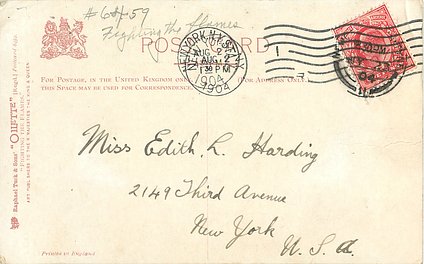 #6 59
Fighting the Flames
POST CARD
NEW YORK, N.Y. STA.
AUG 2
1 30 PM
1904
FOR POSTAGE, IN THE UNITED KINGDOM ONLY
THIS SPACE MAY BE USED FOR CORRESPONDENCE.
(FOR ADDRESS ONLY.)
Miss Edith L. Harding
2149 Third Avenue
New York
U.S.A.
Printed in England
Raphael Tuck & Sons' "OILETTE" [Regd.] Postcard
FIGHTING THE FLAMES.
ART PUBLISHERS TO THEIR MAJESTIES THE KING & QUEEN